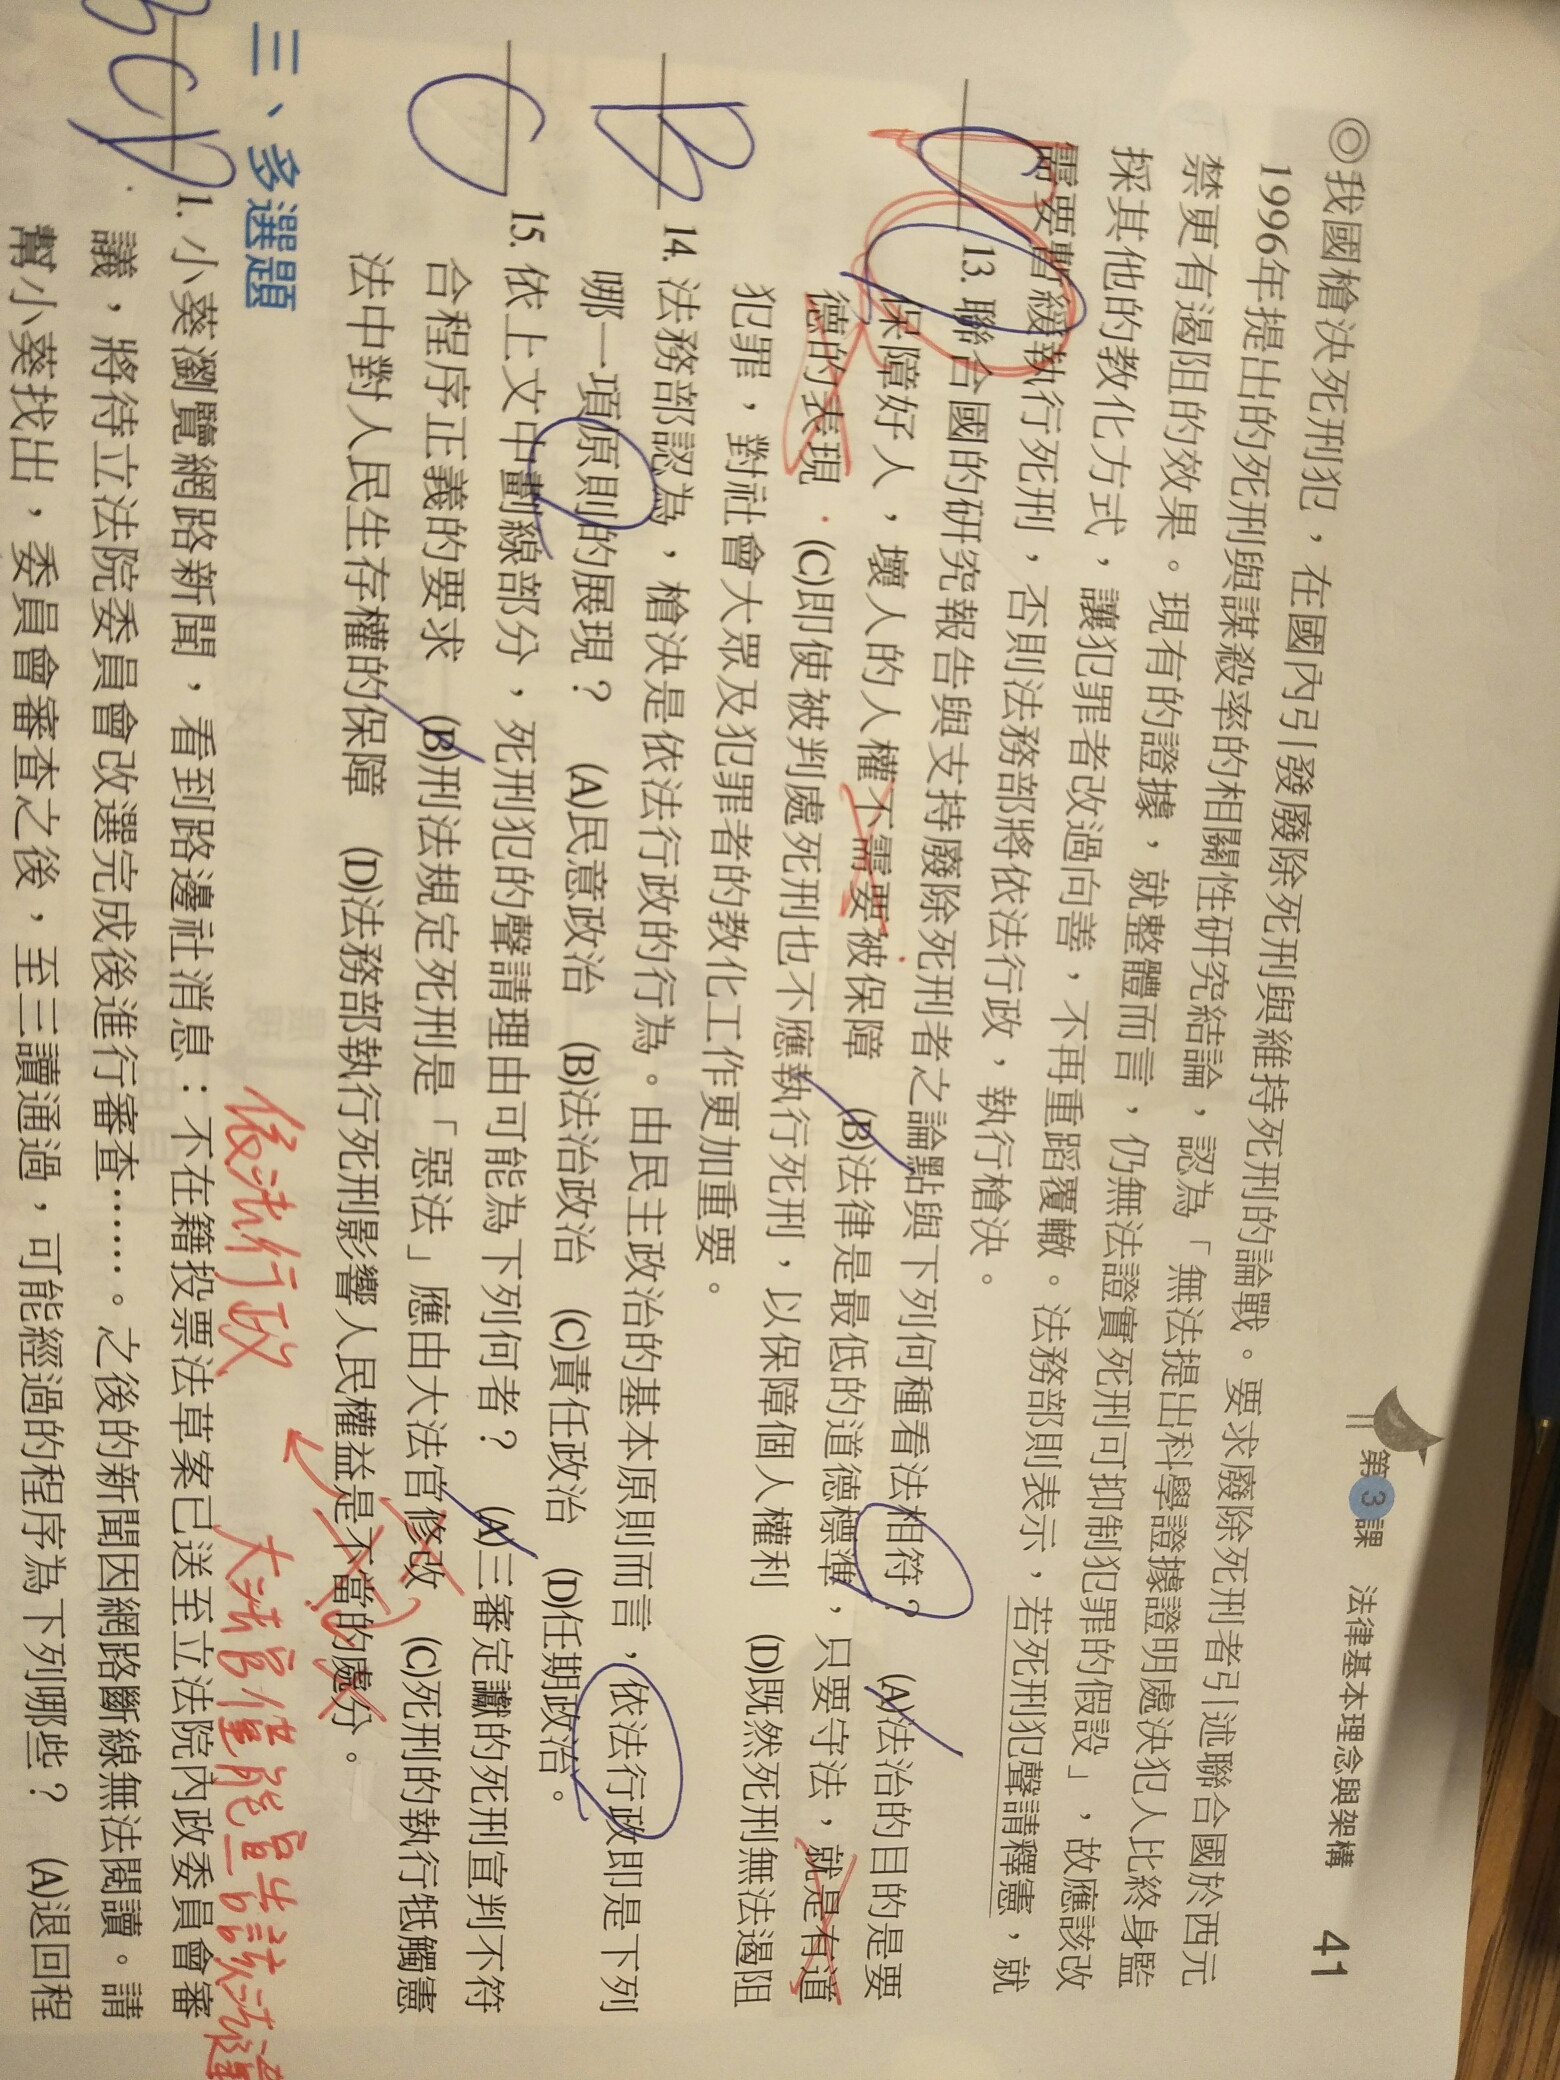 第3課 法律基本理念與架構 41
◎我國槍決死刑犯，在國內引發廢除死刑與維持死刑的論戰。要求廢除死刑者引述聯合國於西元
1996年提出的死刑與謀殺率的相關性研究結論，認為「無法提出科學證據證明處決犯人比終身監
禁更有遏阻的效果。現有的證據，就整體而言，仍無法證實死刑可抑制犯罪的假設」，故應該改
採其他的教化方式，讓犯罪者改過向善，不再重蹈覆轍。法務部則表示，若死刑犯聲請釋憲，就
需要暫緩執行死刑，否則法務部將依法行政，執行槍決。
D 13. 聯合國的研究報告與支持廢除死刑者之論點與下列何種看法相符？ (A)法治的目的是要
保障好人，壞人的人權不需要被保障 (B)法律是最低的道德標準，只要守法，就是有道
德的表現 (C)即使被判處死刑也不應執行死刑，以保障個人權利 (D)既然死刑無法遏阻
犯罪，對社會大眾及犯罪者的教化工作更加重要。
B 14. 法務部認為，槍決是依法行政的行為。由民主政治的基本原則而言，依法行政即是下列
哪一項原則的展現？ (A)民意政治 (B)法治政治 (C)責任政治 (D)任期政治。
C 15. 依上文中劃線部分，死刑犯的聲請理由可能為下列何者？ (A)三審定讞的死刑宣判不符
合程序正義的要求 (B)刑法規定死刑是「惡法」應由大法官修改 (C)死刑的執行牴觸憲
法中對人民生存權的保障 (D)法務部執行死刑影響人民權益是不當的處分。
依法行政 大法官僅能宣告該法違
三、多選題
BCD 1. 小葵瀏覽網路新聞，看到路邊社消息：不在籍投票法草案已送至立法院內政委員會審
議，將待立法院委員會改選完成後進行審查……。之後的新聞因網路斷線無法閱讀。請
幫小葵找出，委員會審查之後，至三讀通過，可能經過的程序為下列哪些？ (A)退回程